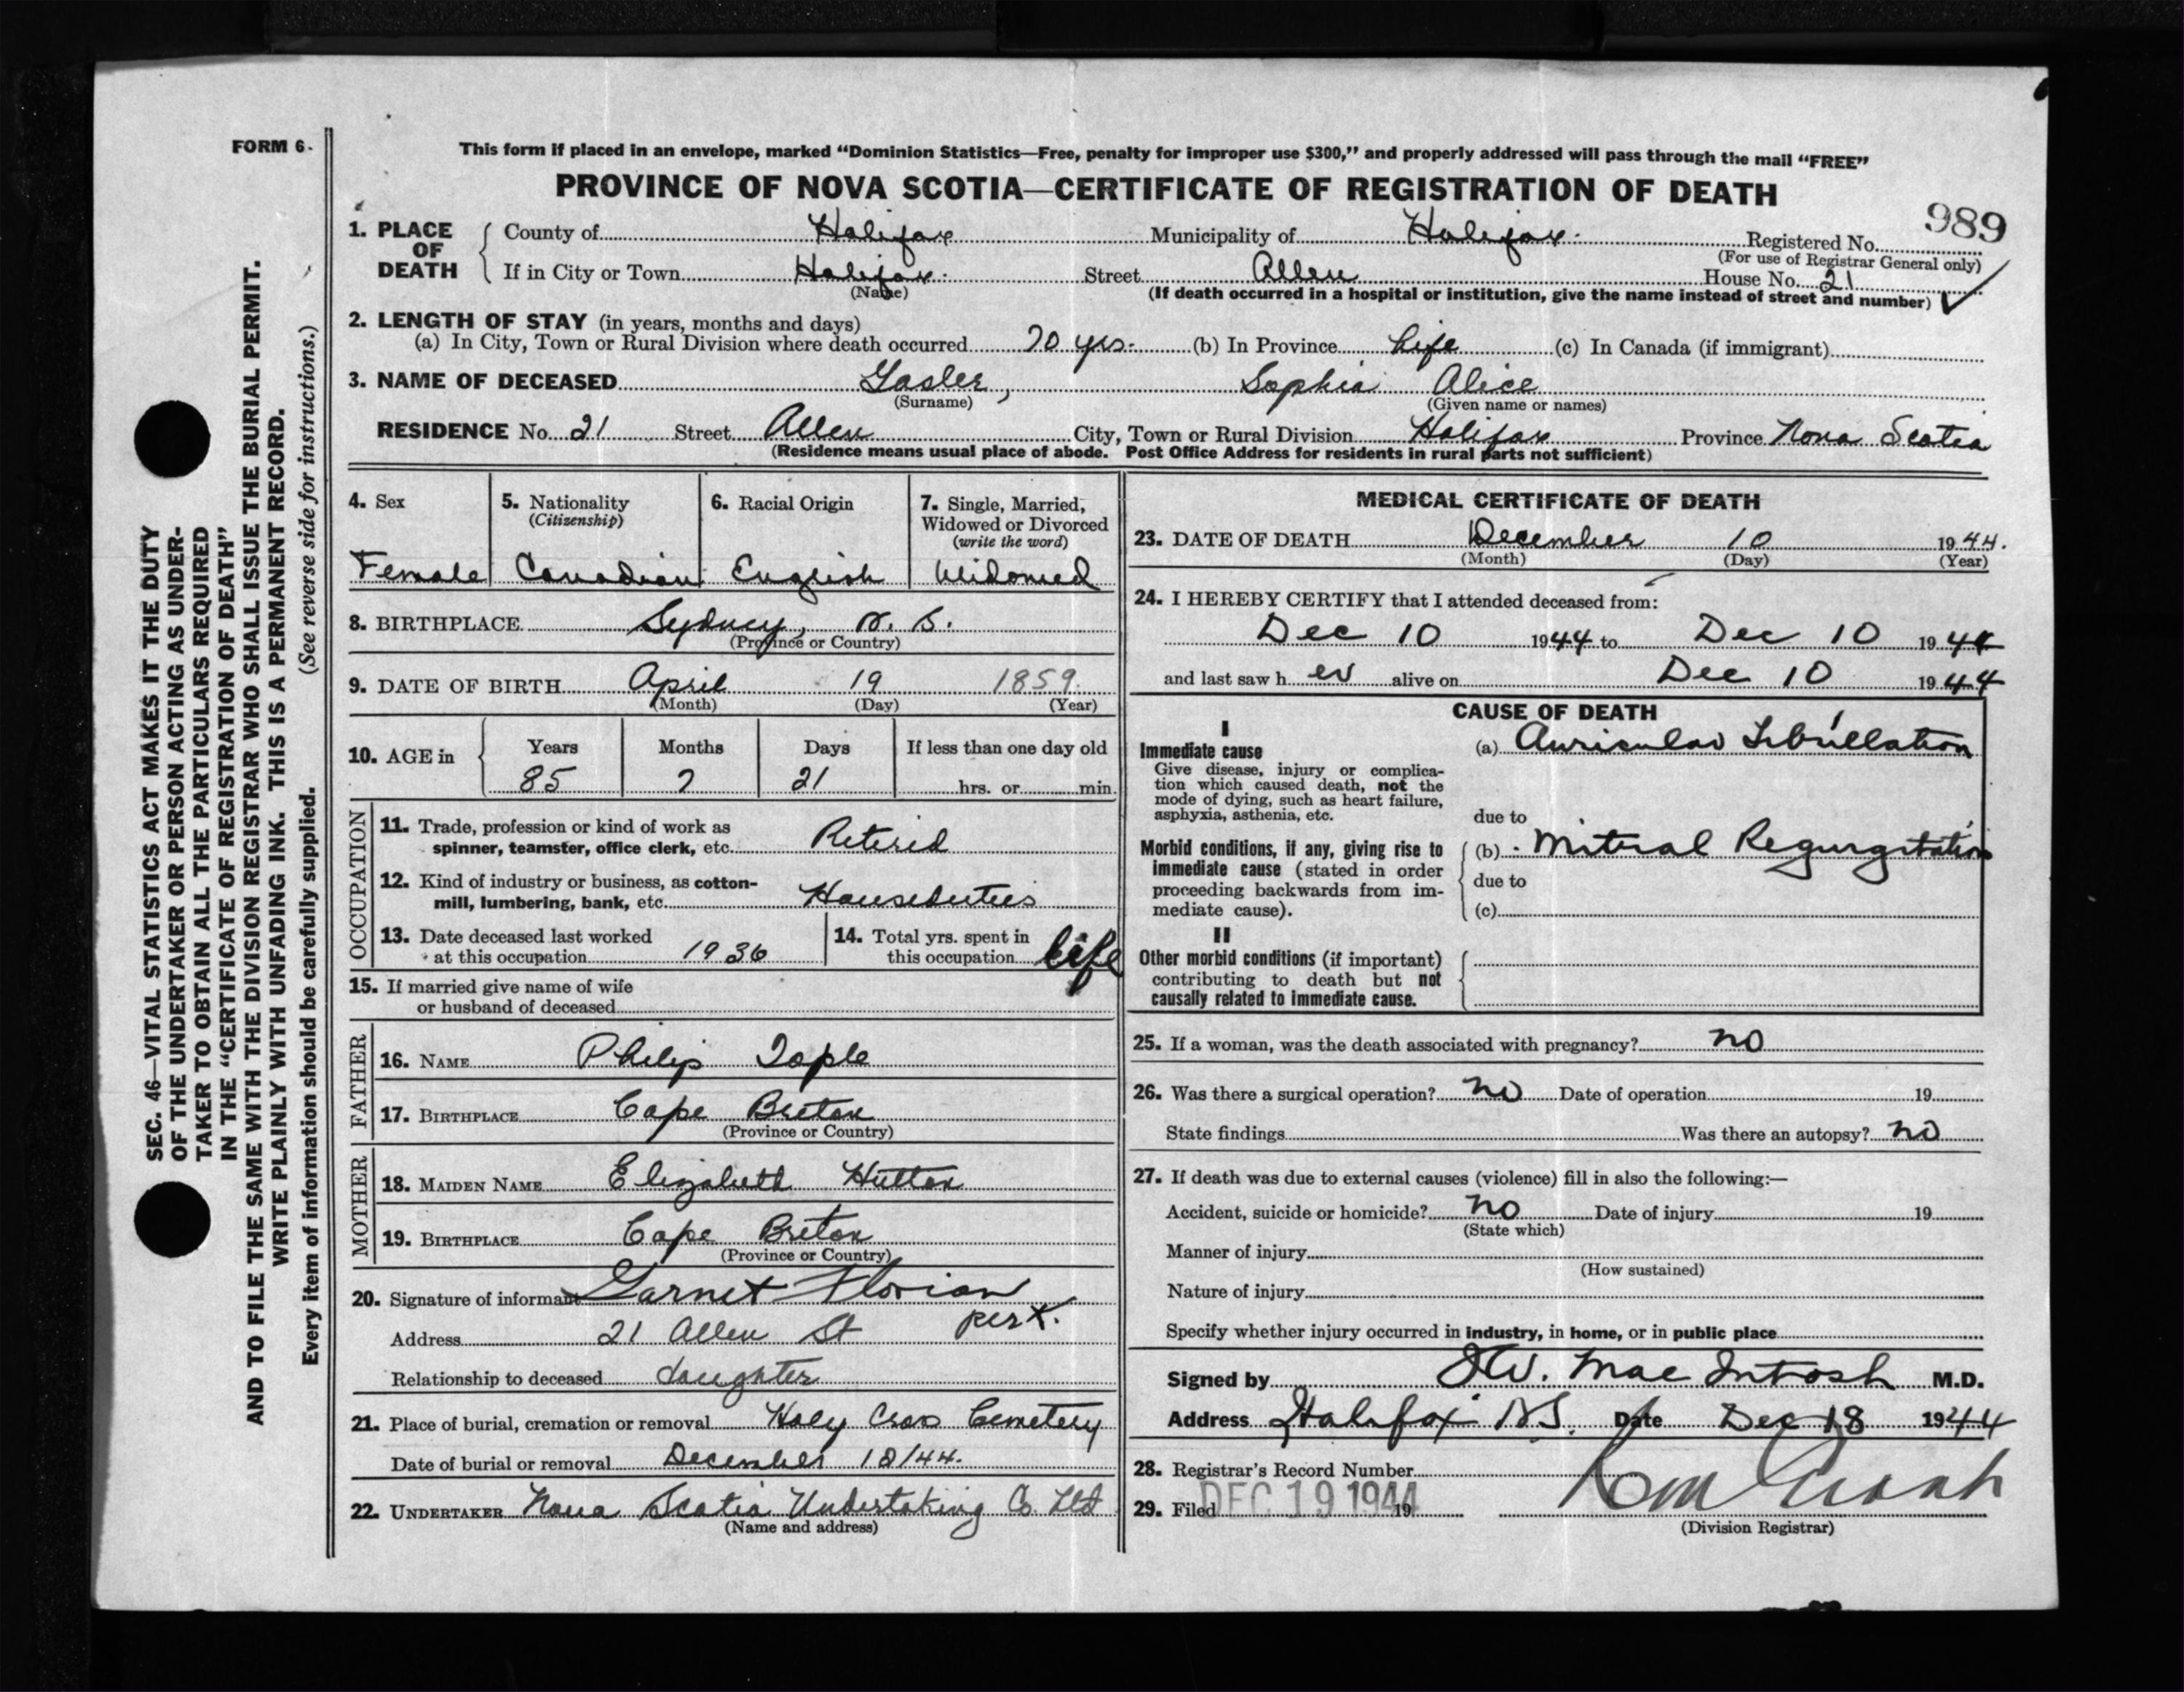 FORM 6.
This form if placed in an envelope, marked “Dominion Statistics—Free, penalty for improper use $300,” and properly addressed will pass through the mail “FREE”
PROVINCE OF NOVA SCOTIA—CERTIFICATE OF REGISTRATION OF DEATH
989
1. PLACE OF DEATH
County of Halifax Municipality of Halifax. Registered No.
(For use of Registrar General only)
If in City or Town Halifax. Street Allen House No. 21
(Name) (If death occurred in a hospital or institution, give the name instead of street and number) ✓
2. LENGTH OF STAY (in years, months and days)
(a) In City, Town or Rural Division where death occurred 70 yrs. (b) In Province Life (c) In Canada (if immigrant)
3. NAME OF DECEASED Sophia Alice
(Surname) (Given name or names)
RESIDENCE No. 21 Street Allen City, Town or Rural Division Halifax Province Nova Scotia
(Residence means usual place of abode. Post Office Address for residents in rural parts not sufficient)
4. Sex
Female
5. Nationality
(Citizenship)
Canadian
6. Racial Origin
English
7. Single, Married,
Widowed or Divorced
(write the word)
Widowed
8. BIRTHPLACE Sydney, N. S.
(Province or Country)
9. DATE OF BIRTH April 19 1859.
(Month) (Day) (Year)
10. AGE in
Years Months Days If less than one day old
85 7 21 hrs. or min.
OCCUPATION
11. Trade, profession or kind of work as
spinner, teamster, office clerk, etc. Retired
12. Kind of industry or business, as cotton-
mill, lumbering, bank, etc. Houseduties
13. Date deceased last worked
at this occupation 1936
14. Total yrs. spent in
this occupation life
15. If married give name of wife
or husband of deceased
FATHER
16. NAME Philip
17. BIRTHPLACE Cape Breton
(Province or Country)
MOTHER
18. MAIDEN NAME Elizabeth Hutton
19. BIRTHPLACE Cape Breton
(Province or Country)
20. Signature of informant Garnet Florian
Address 21 Allen St
Relationship to deceased daughter
21. Place of burial, cremation or removal Holy Cross Cemetery
Date of burial or removal December 18/44.
22. UNDERTAKER Nova Scotia Undertaking Co. Ltd
(Name and address)
MEDICAL CERTIFICATE OF DEATH
23. DATE OF DEATH December 10 1944.
(Month) (Day) (Year)
24. I HEREBY CERTIFY that I attended deceased from:
Dec 10 1944 to Dec 10 1944
and last saw h er alive on Dec 10 1944
CAUSE OF DEATH
I
Immediate cause
Give disease, injury or complica-
tion which caused death, not the
mode of dying, such as heart failure,
asphyxia, asthenia, etc.
(a) Auricular Fibrillation
due to
Morbid conditions, if any, giving rise to
immediate cause (stated in order
proceeding backwards from im-
mediate cause).
(b) Mitral Regurgitation
due to
(c)
II
Other morbid conditions (if important)
contributing to death but not
causally related to immediate cause.
25. If a woman, was the death associated with pregnancy? no
26. Was there a surgical operation? no Date of operation 19
State findings Was there an autopsy? no
27. If death was due to external causes (violence) fill in also the following:—
Accident, suicide or homicide? no Date of injury 19
(State which)
Manner of injury
(How sustained)
Nature of injury
Specify whether injury occurred in industry, in home, or in public place
Signed by W. MacIntosh M.D.
Address Halifax NS. Date Dec 18 1944
28. Registrar's Record Number
29. Filed DEC 19 1944 19
(Division Registrar)
SEC. 46—VITAL STATISTICS ACT MAKES IT THE DUTY
OF THE UNDERTAKER OR PERSON ACTING AS UNDER-
TAKER TO OBTAIN ALL THE PARTICULARS REQUIRED
IN THE “CERTIFICATE OF REGISTRATION OF DEATH”
AND TO FILE THE SAME WITH THE DIVISION REGISTRAR WHO SHALL ISSUE THE BURIAL PERMIT.
WRITE PLAINLY WITH UNFADING INK. THIS IS A PERMANENT RECORD.
Every item of information should be carefully supplied. (See reverse side for instructions.)